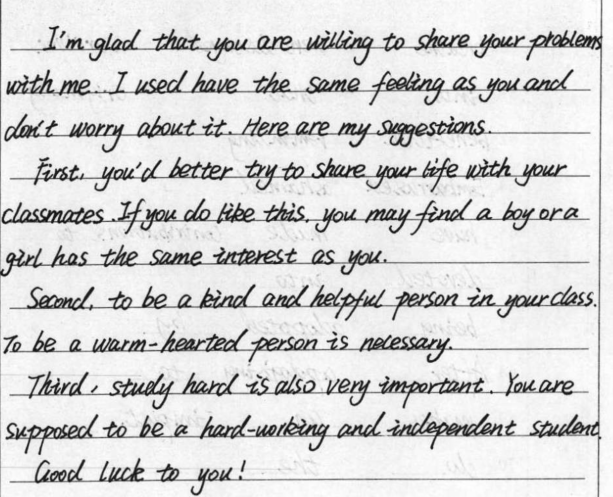 I'm glad that you are willing to share your problems
with me. I used have the same feeling as you and
don't worry about it. Here are my suggestions.
First, you'd better try to share your life with your
classmates. If you do like this, you may find a boy or a
girl has the same interest as you.
Second, to be a kind and helpful person in your class.
To be a warm-hearted person is necessary.
Third, study hard is also very important. You are
supposed to be a hard-working and independent student.
Good luck to you!